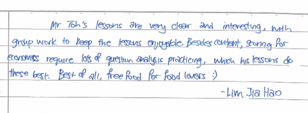 Mr Toh's lessons are very clear and interesting, with
group work to keep the lessons enjoyable. Besides content, scoring for
economics require lots of question analysis practicing, which his lessons do
these best. Best of all, free food for food lovers :)
- Lim Jia Hao